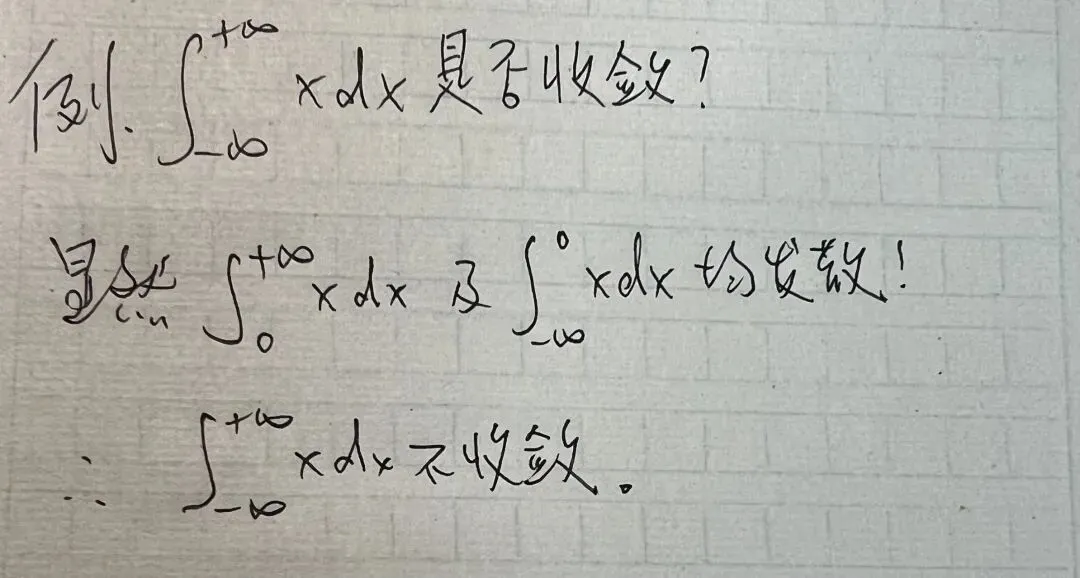 例. ∫_{-∞}^{+∞} x dx 是否收敛?
显然 ∫_{0}^{+∞} x dx 及 ∫_{-∞}^{0} x dx 均发散!
∴ ∫_{-∞}^{+∞} x dx 不收敛。